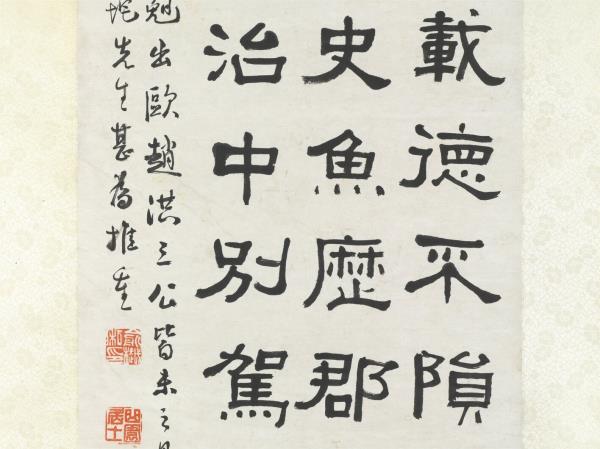 載德不隕
史魚歷郡
治中別駕
出歐趙洪三公皆未之
垞先生甚為推重
曲園居士